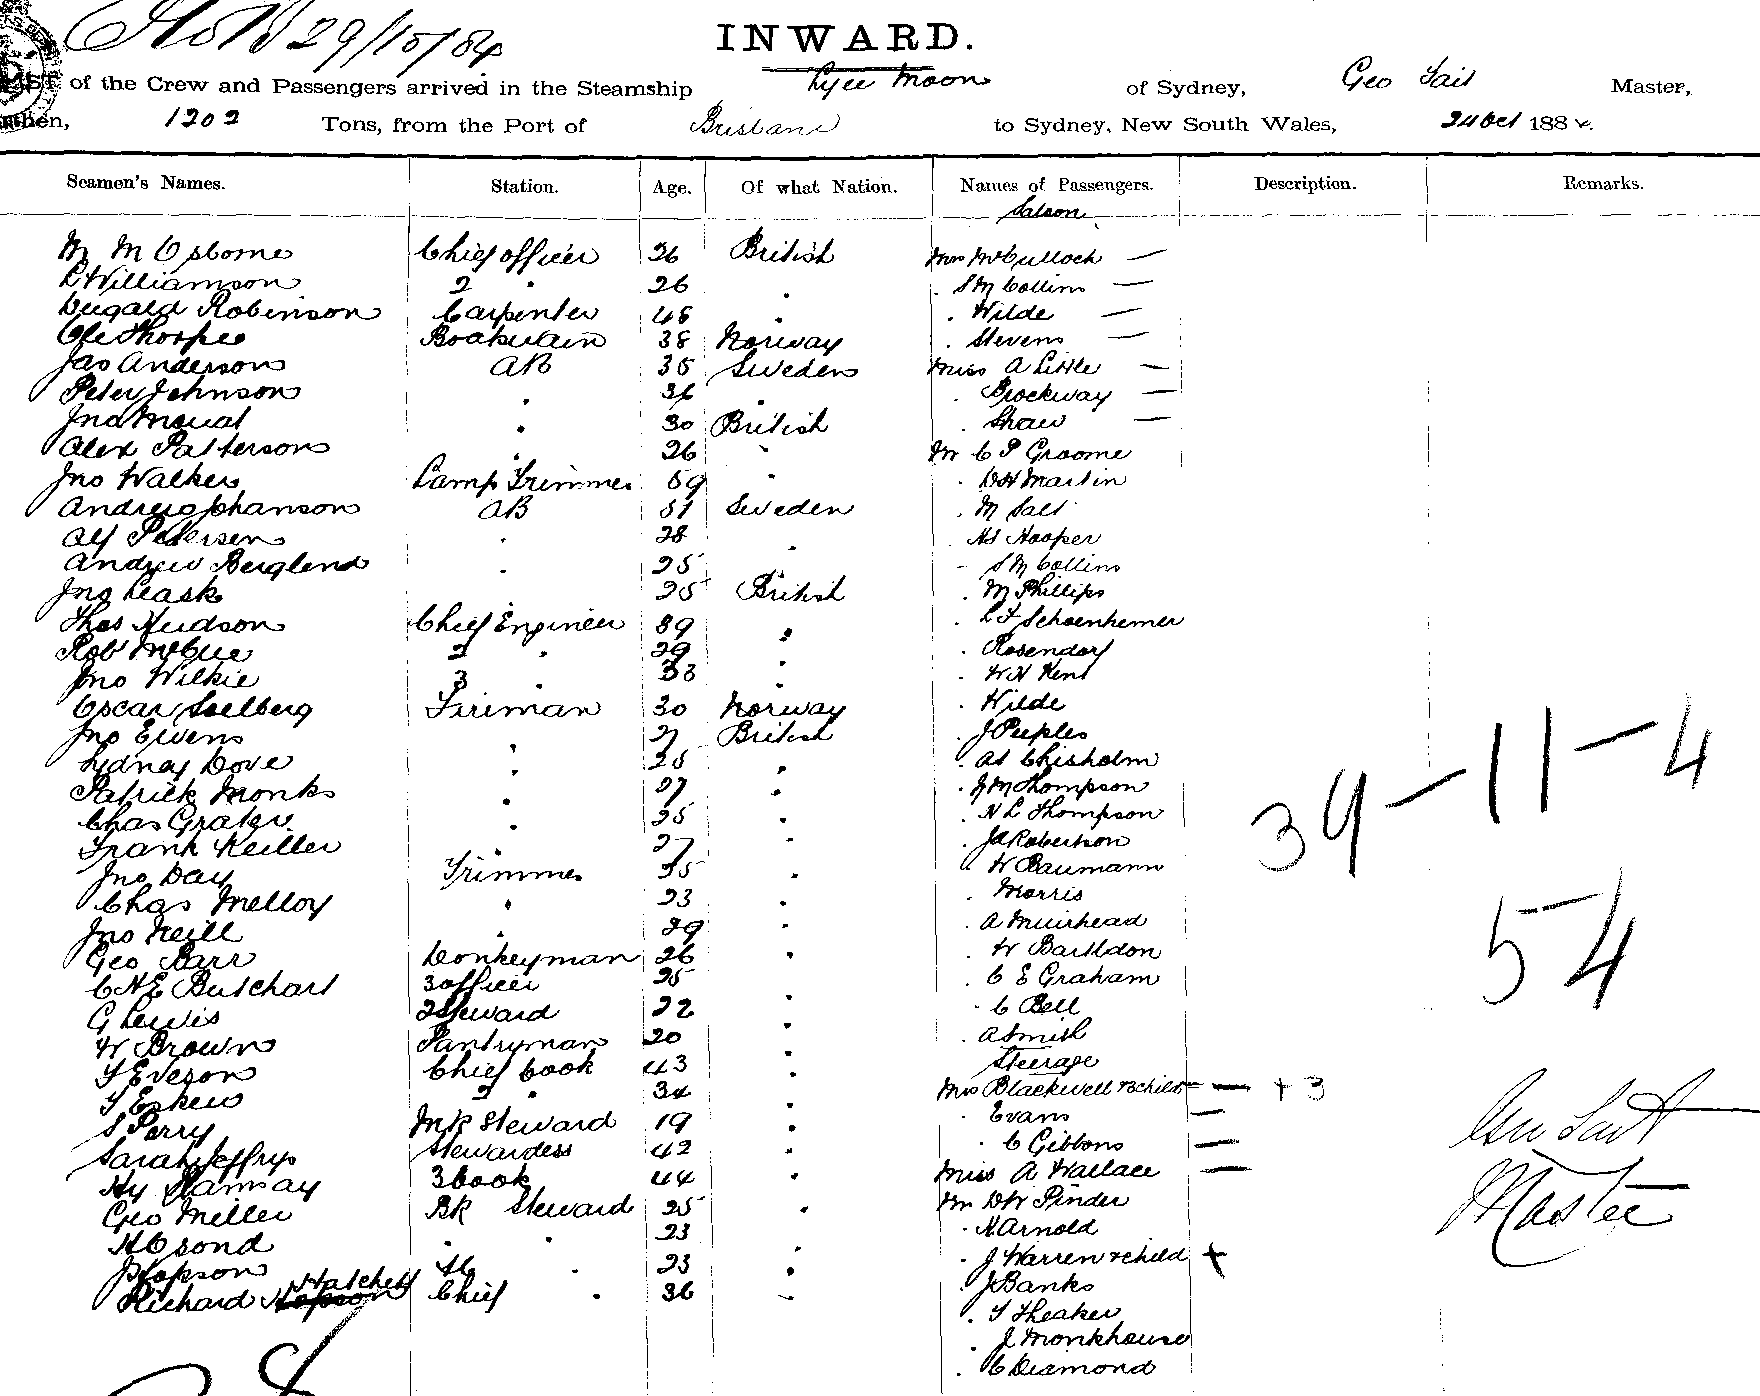 29/10/84
INWARD.
of the Crew and Passengers arrived in the Steamship Lyee Moon of Sydney, Geo Master,
1202 Tons, from the Port of Brisbane to Sydney, New South Wales, 24 Oct 1884.
Seamen's Names. Station. Age. Of what Nation. Names of Passengers. Description. Remarks.
Saloon
M M Osborne Chief officer 26 British Mrs McCulloch —
Williamson 2 " 26 " " S M Collins —
Dugald Robinson Carpenter 45 " " Wilde —
Ole Thorpe Boatswain 38 Norway " Stevens —
Jas Anderson AB 35 Sweden Miss A Little —
Peter Johnson " 36 " " Brockway —
Jno Mouat " 30 British " Shaw —
Alex Patterson " 26 " Mr C P Groome
Jno Walker Lamp Trimmer 59 " " D H Martin
Andrew Johanson AB 31 Sweden " M Salt
Alf Petersen " 28 " " Hooper
Andrew Berglend " 25 " S M Collins
Jno Leask " 25 British " M Phillips
Thos Hudson Chief Engineer 39 " " Schoenhemer
Rob McCue 2 " 29 " " Rosendorf
Jno Wilkie 3 " 33 " " W H Kent
Oscar Soelberg Fireman 30 Norway " Wilde
Jno Ewens " 27 British " J Peeples
Sydney Dove " 25 " " Chisholm
Patrick Monks " 27 " " J M Thompson
Chas " 25 " " H L Thompson
Frank Keiller " 27 " " J A Robertson
Jno Day Trimmer 35 " " W Baumann
Chas Melloy " 23 " " Morris
Jno Neill " 29 " " A Muirhead
Geo Barr Donkeyman 26 " " W
C H E Butchart 3 officer 25 " " C E Graham
G Lewis 2 Steward 22 " " C Bell
W Brown Pantryman 20 " " A Smith
Steerage
T Eveson Chief Cook 43 " Mrs Blackwell & 3 child — + 3
T Eskew 2 " 34 " " Evans —
S Perry Steward 19 " " C Gibbons —
Sarah Jeffrys Stewardess 42 " Miss A Wallace —
Hy Ramsay 3 Cook 44 " Mr D W Pinder
Geo Meller BK Steward 25 " " H Arnold
" " 23 " J Warren & child +
J Hopson " 23 " " J Banks
Richard Hatchett Chief " 36 " " T Theaker
" J Monkhouse
" C Diamond
39 - 11 - 4
54
Master